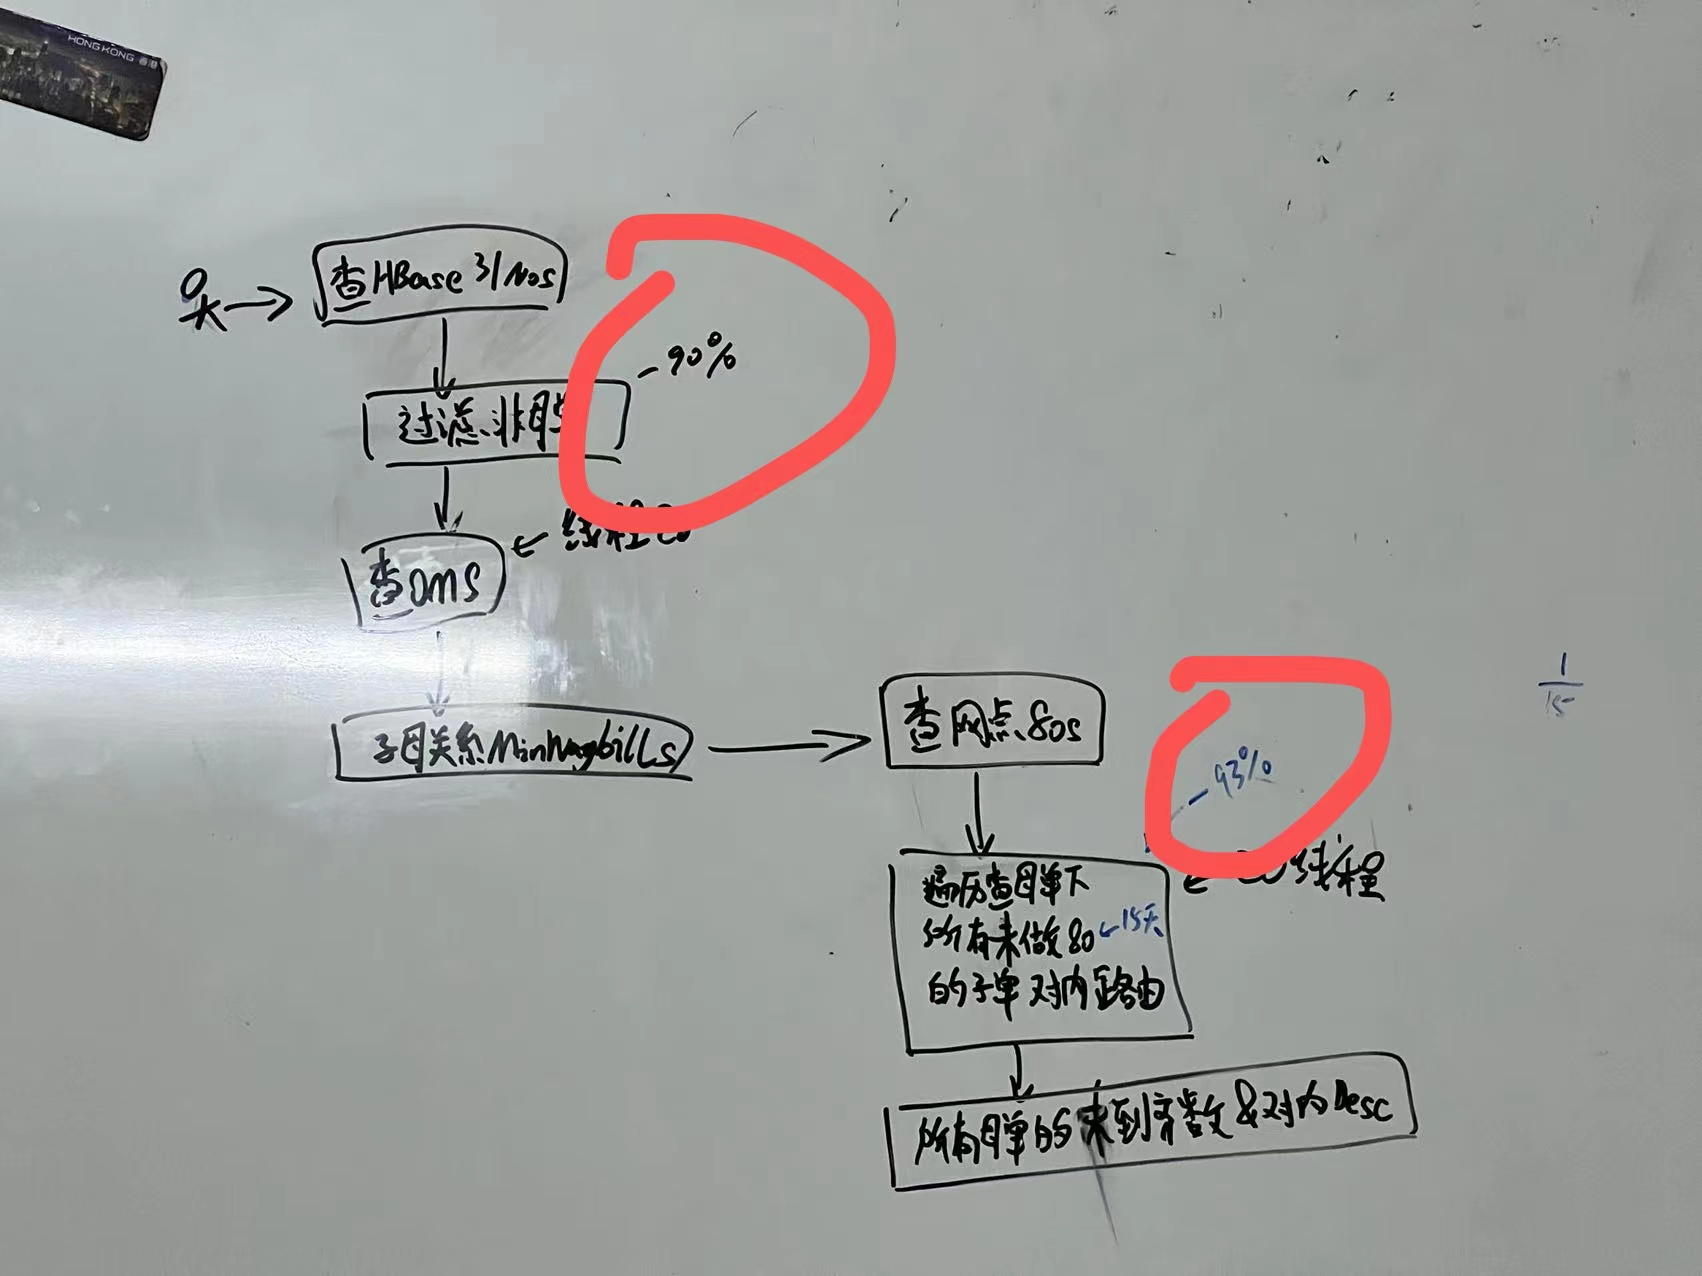 HONG KONG 香港
查HBase 31Nos
-90%
过滤非母
线程20
查OMS
子母关系MainWaybills
查网点80s
-93%
20线程
遍历查母单下
所有未做80 ←15天
的子单对内路由
所有母单的未到齐数&对内Desc
1
15